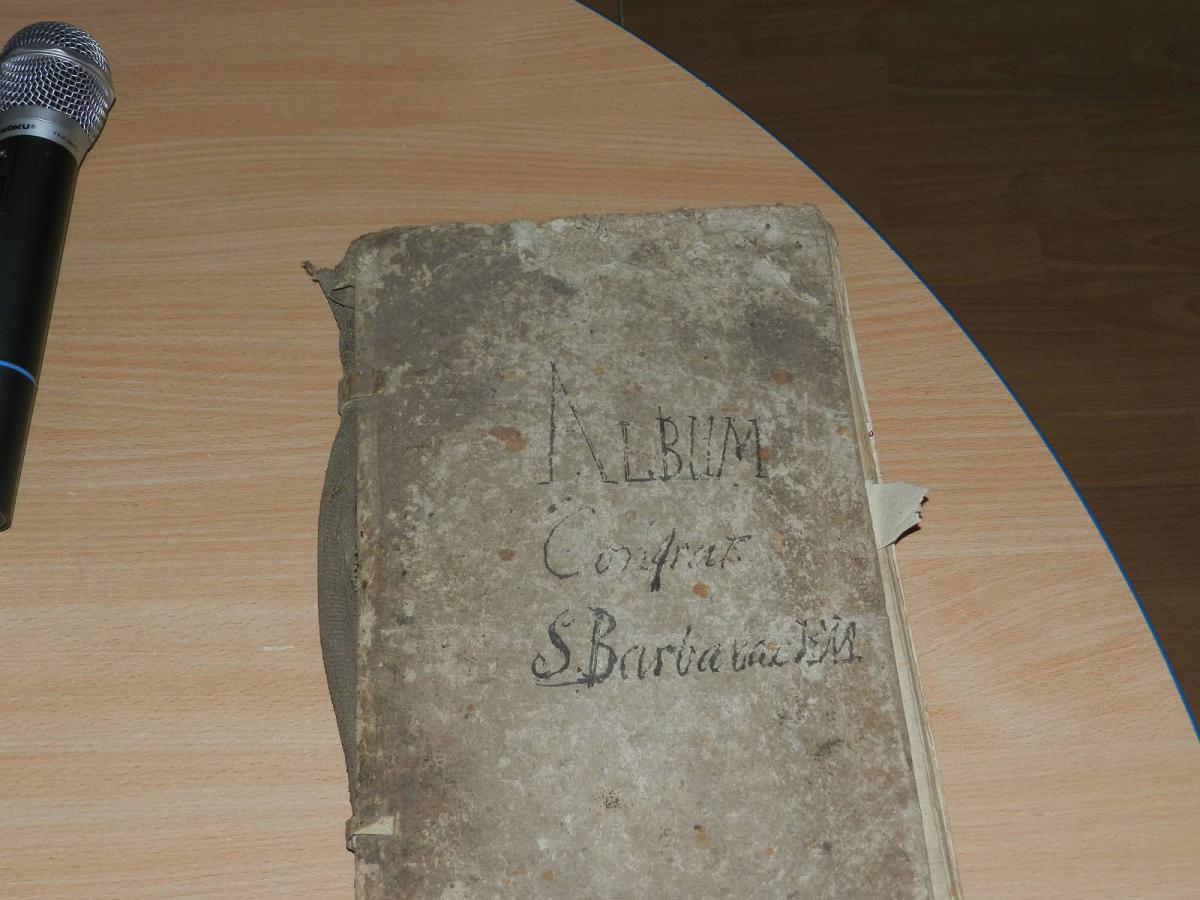 ALBUM
Confrat:
S. Barbarae V: M.